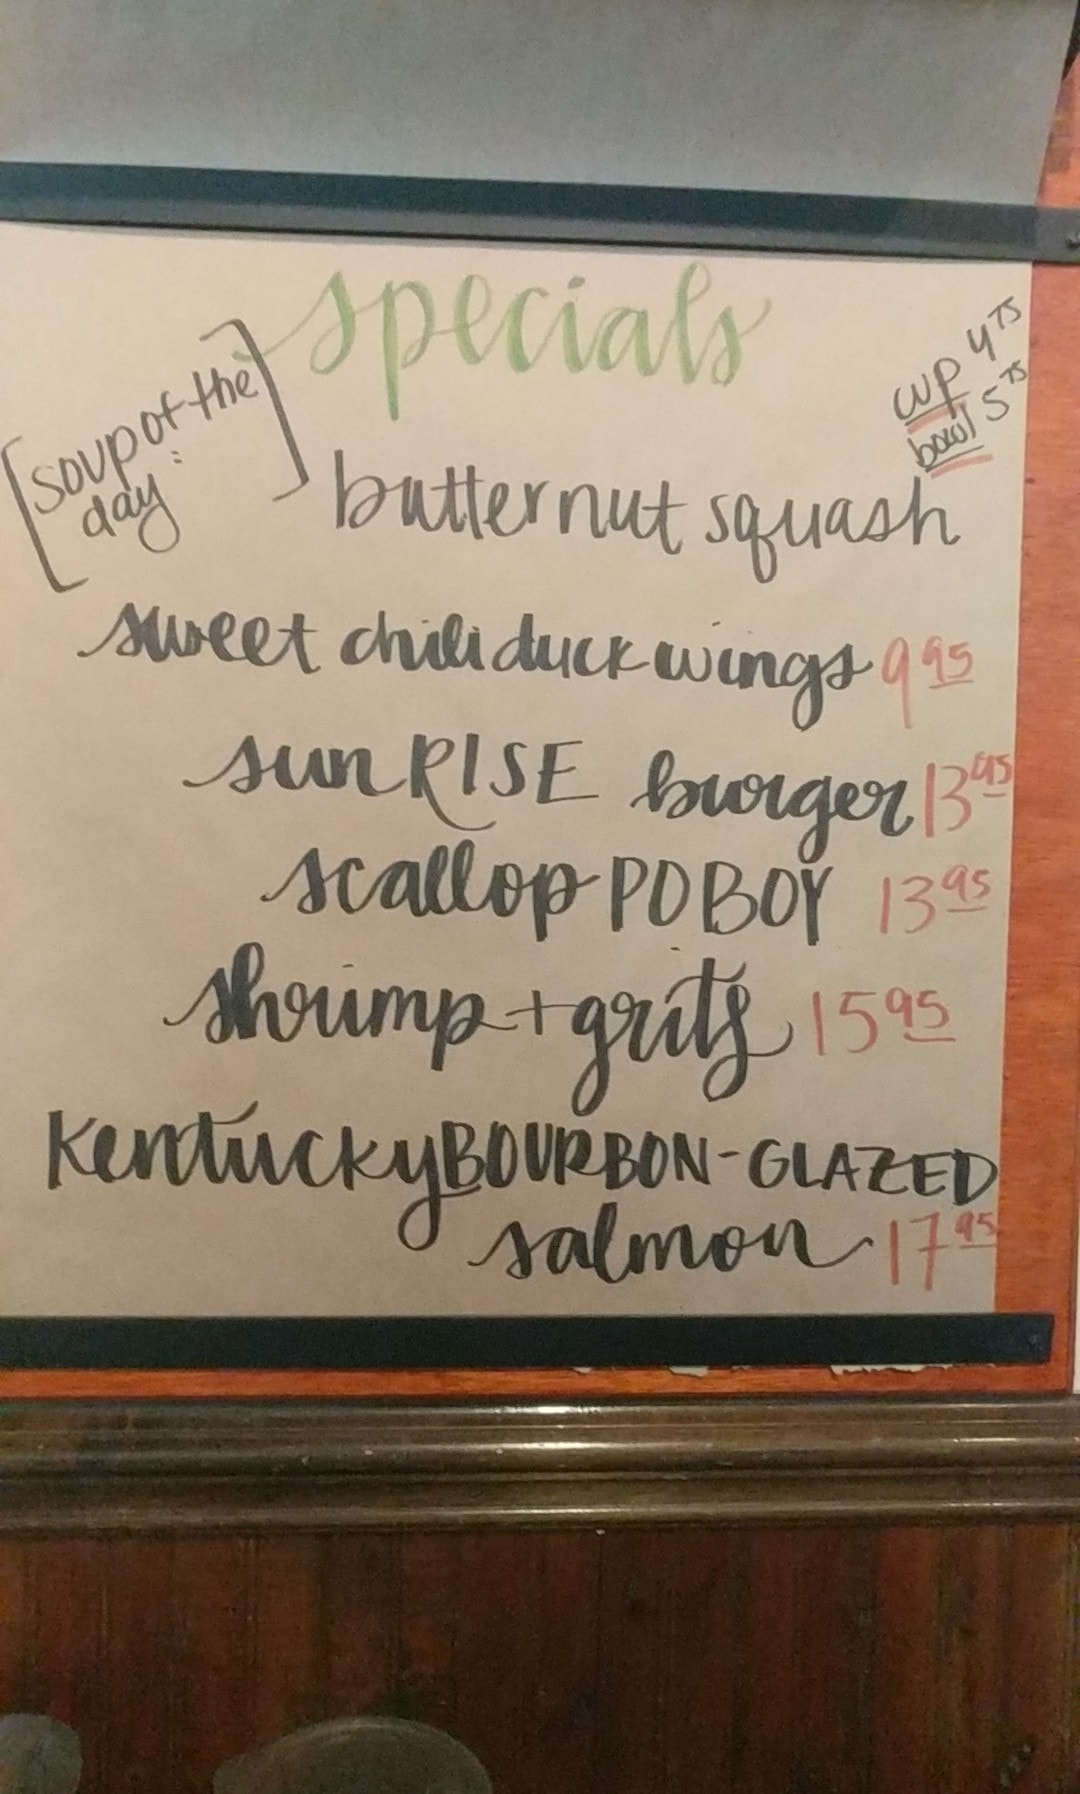 specials
[soup of the
day:]
cup 4 75
bowl 5 75
butternut squash
sweet chili duck wings 9 95
sunRISE burger 13 95
scallop PO BOY 13 95
shrimp + grits 15 95
Kentucky BOURBON-GLAZED
salmon 17 95